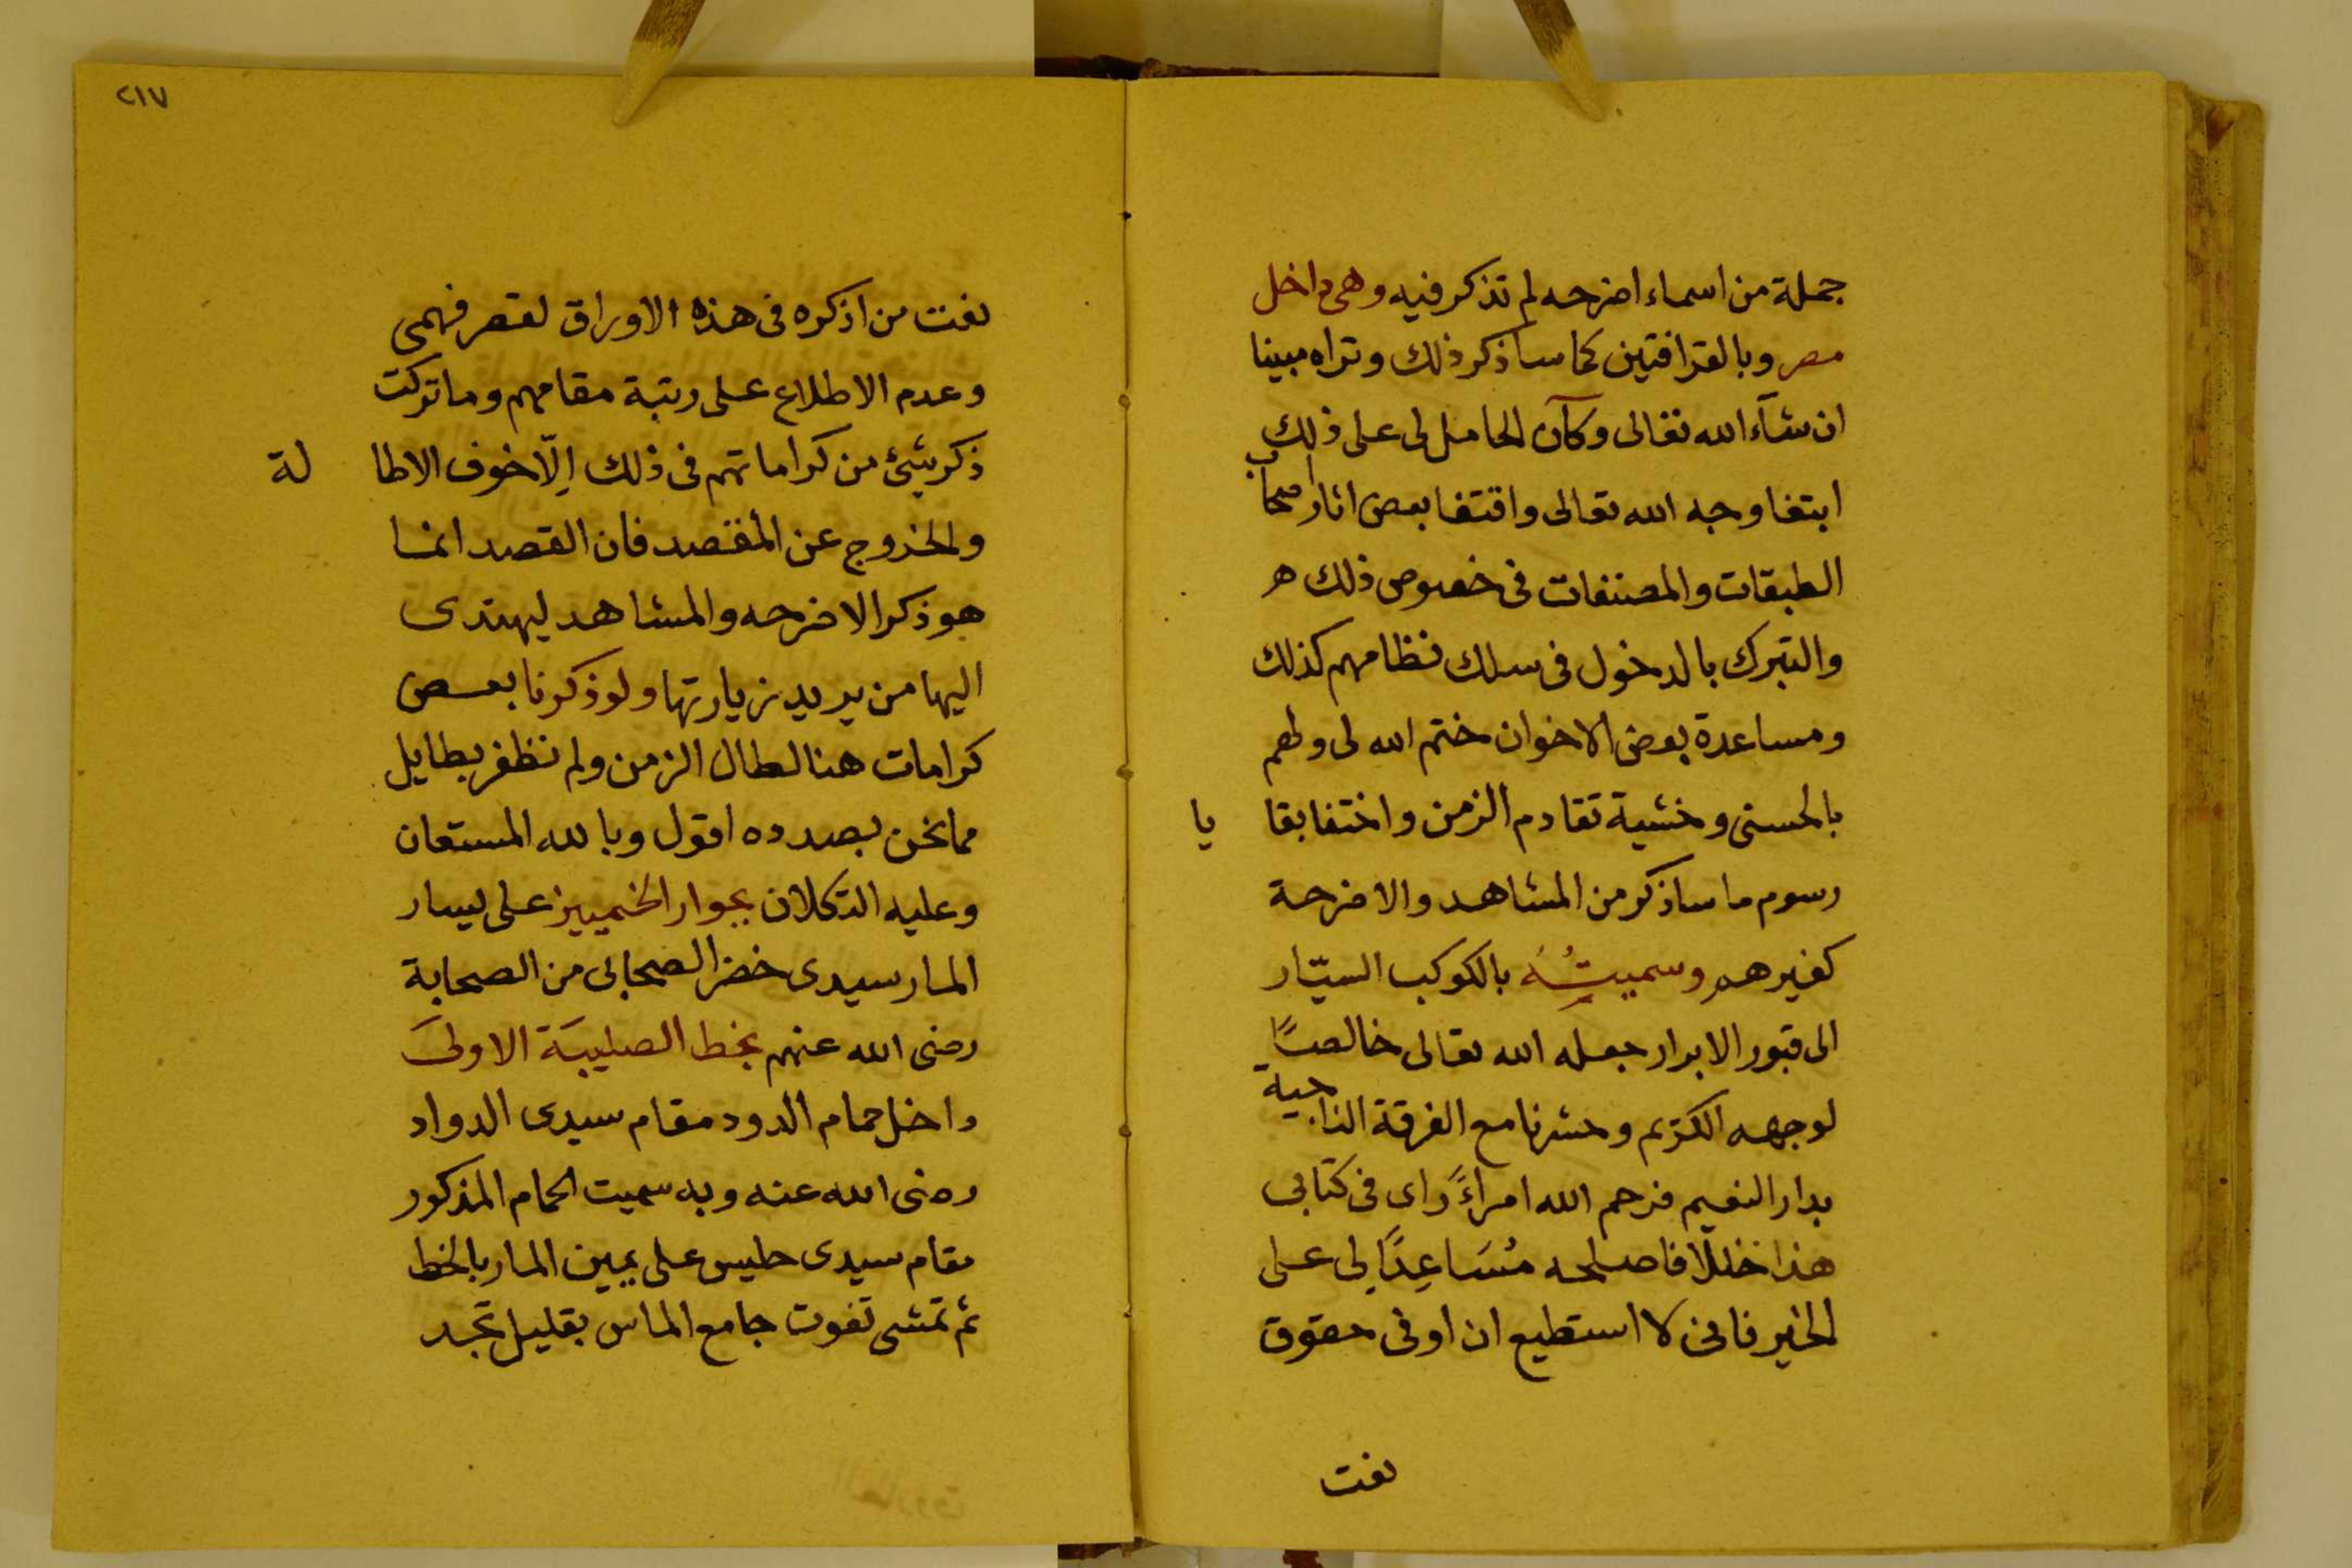 جملة من اسماء اضرحه لم تذكر فيه وهى داخل
مصر وبالقرافتين كما ساذكر ذلك وتراه مبينا
ان شآء الله تعالى وكآن الحامل لى على ذلك
ابتغا وجه الله تعالى واقتفا بعض اثار اصحاب
الطبقات والمصنفات فى خصوص ذلك هر
والتبرك بالدخول فى سلك نظامهم كذلك
ومساعدة بعض الاخوان ختم الله لى ولهم
بالحسنى وخشية تقادم الزمن واختفا بقا يا
رسوم ما ساذكر من المشاهد والاضرحة
كغيرهم وسميتُهُ بالكوكب السيّار
الى قبور الابرار جعله الله تعالى خالصًا
لوجهه الكريم وحشرنا مع الفرقة الناجية
بدار النعيم فرحم الله امراءً راى فى كتابى
هذا خللا فاصلحه مُسَاعِدًا لى على
الخير فانى لا استطيع ان اوفى حقوق
نعت
٢١٧
نعت من اذكره فى هذه الاوراق لقصر فهمى
وعدم الاطلاع على رتبة مقامهم وما تركت
ذكر شئ من كراماتهم فى ذلك اِلّا خوف الاطا لة
والخروج عن المقتصد فان القصد انما
هو ذكر الاضرحه والمشاهد ليهتدى
اليها من يريد زيارتها ولو ذكرنا بعض
كرامات هنا لطال الزمن ولم نظفر بطايل
مما نحن بصدده اقول وبالله المستعان
وعليه التكلان بجوار الخيميين على يسار
المار سيدى خضر الصحابى من الصحابة
رضى الله عنهم بخط الصليبَة الاولىَ
داخل حمام الدود مقام سيدى الدواد
رضى الله عنه وبه سميت الحمام المذكور
مقام سيدى حليس على يمين المار بالخط
ثم تمشى تفوت جامع الماس بقليل تجد